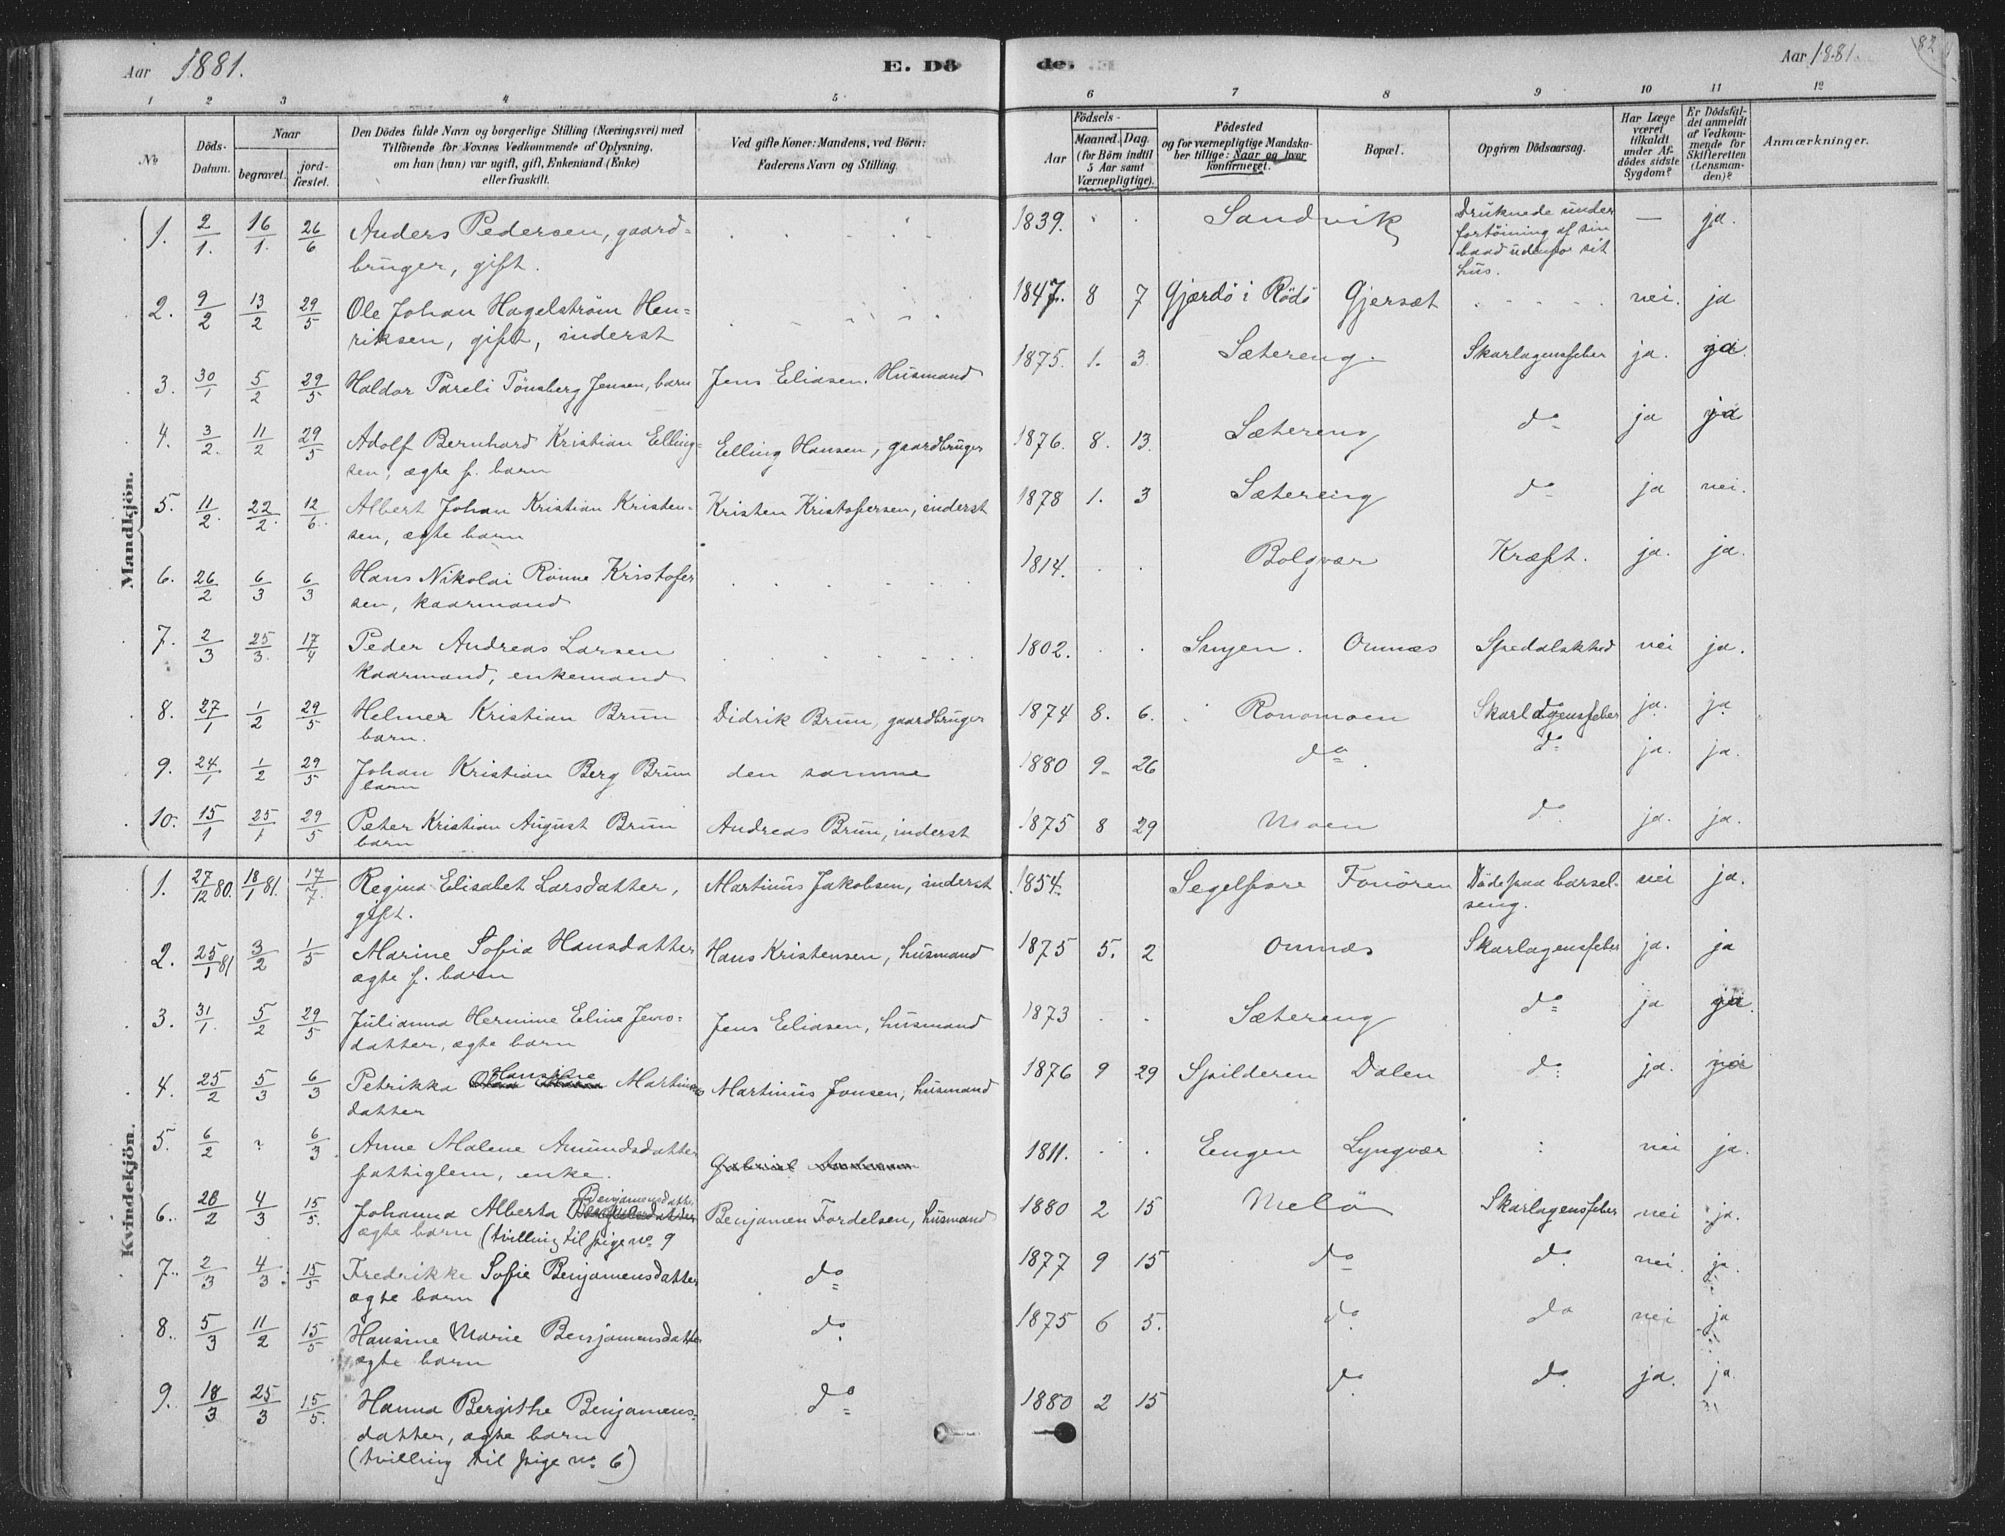 Aar 1881. E. Dö de. Aar 1881. 82
1 2 3 4 5 6 7 8 9 10 11 12
No
Döds-Datum.
Naar
begravet. jord-fæstet.
Den Dödes fulde Navn og borgerlige Stilling (Næringsvei) med
Tilföiende for Voxnes Vedkommende af Oplysning,
om han (hun) var ugift, gift, Enkemand (Enke)
eller fraskilt.
Ved gifte Koner: Mandens, ved Börn:
Faderens Navn og Stilling.
Födsels-
Aar Maaned. Dag.
(for Börn indtil
5 Aar samt
Værnepligtige).
Födested
og for værnepligtige Mandska-
ber tillige: Naar og hvor
konfirmeret.
Bopæl.
Opgiven Dödsaarsag.
Har Læge
været
tilkaldt
under Af-
dödes sidste
Sygdom?
Er Dödsfal-
det anmeldt
af Vedkom-
mende for
Skifteretten
(Lensman-
den)?
Anmærkninger.
Mandkjön.
1. 2/1. 16/1. 26/6 Anders Pedersen, gaard- 1839. Sandvik Druknede under — ja.
bruger, gift. fortöining af sin
baad udenfor sit
hus.
2. 9/2 13/2 29/5 Ole Johan Hagelstrøm Hen- 1847. 8 7 Gjærdö i Rödö Gjersæt nei. ja
riksen, gift, inderst
3. 30/1 5/2 29/5 Haldor Pareli Tönsberg Jensen, barn Jens Eliasen. Husmand 1875. 1. 3 Sætereng. Skarlagensfeber ja. ja.
4. 3/2. 11/2 29/5 Adolf Bernhard Kristian Elling- Elling Hansen, gaardbruger 1876. 8. 13. Sætereng do ja ja
sen, ægte f. barn
5. 11/2. 22/2. 12/6. Albert Johan Kristian Kristen- Kristen Kristofersen, inderst 1878 1. 3 Sætereng do ja nei.
sen, ægte barn
6. 26/2 6/3 6/3 Hans Nikolai Rönne Kristofer 1814. Bolgvær Kræft. ja. ja.
sen, kaarmand
7. 2/3 25/3. 17/4 Peder Andreas Larsen 1802. Sagen. Onnæs Spedalskhed nei ja.
kaarmand, enkemand
8. 27/1 1/2 29/5 Helmer Kristian Brun Didrik Brun, gaardbruger 1874 8. 6. Ronomoen Skarlagensfeber ja. ja
barn.
9. 24/1 1/2 29/5 Johan Kristian Berg Brun den samme 1880 9 26 do do ja. ja.
barn
10. 15/1 25/1 29/5 Peter Kristian August Brun Andreas Brun, inderst 1875 8 29 Moen do ja. ja.
barn
Kvindekjön.
1. 27/12 80. 18/1 81. 17/7. Regina Elisabet Larsdatter, Martinus Jakobsen, inderst 1854. Segelfore Fonören Döde paa barsel- nei ja.
gift. seng.
2. 25/1 81 3/2 1/5 Marine Sofia Hansdatter Hans Kristensen, husmand 1875 5. 2 Onnæs Skarlagensfeber ja. ja
ægte f. barn
3. 31/1. 5/2 29/5 Julianna Hermine Eline Jens- Jens Eliasen, husmand 1873 Sætereng do ja ja.
datter, ægte barn
4. 25/2 5/3 6/3 Petrikka Hansine Martinus Martinus Jonsen, husmand 1876 9 29 Spilderen Dalen do ja.
datter
5. 6/2 ? 6/3 Anne Malene Amundsdatter 1811. Eengen Lyngvær nei ja.
fattiglem, enke.
6. 28/2 4/3 15/5. Johanna Alberta Benjamensdatter Benjamen Fordelsen, husmand 1880 2 15 Melö Skarlagensfeber nei ja.
ægte barn (tvilling til pige no 9
7. 2/3 4/3. 15/5 Fredrikke Sofie Benjamensdatter do 1877 9 15 do do. nei. ja.
ægte barn
8. 5/3 11/2 15/5 Hansine Marie Benjamensdatter do. 1875 6 5. do do nei ja
ægte barn
9. 18/3 25/3 15/5. Hanna Bergithe Benjamens- do 1880 2 15 do. do. ja. ja.
datter, ægte barn
(tvilling til pige no 6)